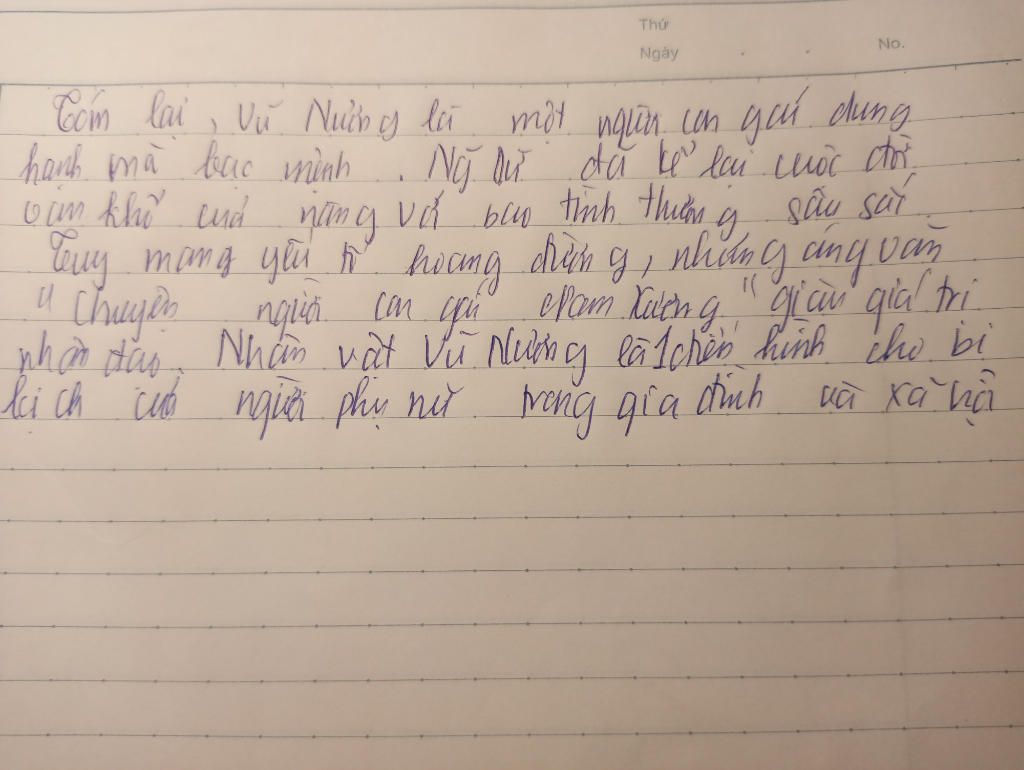 Thứ
Ngày
No.
Tóm lại, Vũ Nương là một người con gái dung
hạnh mà bạc mệnh. Ng Dữ đã kể lại cuộc đời
oan khổ của nàng với bao tình thương sâu sắc
Tuy mang yếu tố hoang đường, nhưng áng văn
"Chuyện người con gái Nam Xương" giàu giá trị
nhân đạo. Nhân vật Vũ Nương là 1 điển hình cho bi
kịch của người phụ nữ trong gia đình và xã hội